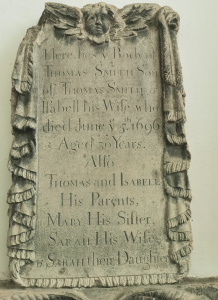 Here lies y Body of
THOMAS SMITH Son
of THOMAS SMITH &
ISABELL his Wife, who
died June y 5th 1696
Aged 70 Years.
Also
THOMAS and ISABELL
His Parents,
MARY His Sister,
SARAH His Wife,
& SARAH their Daughter